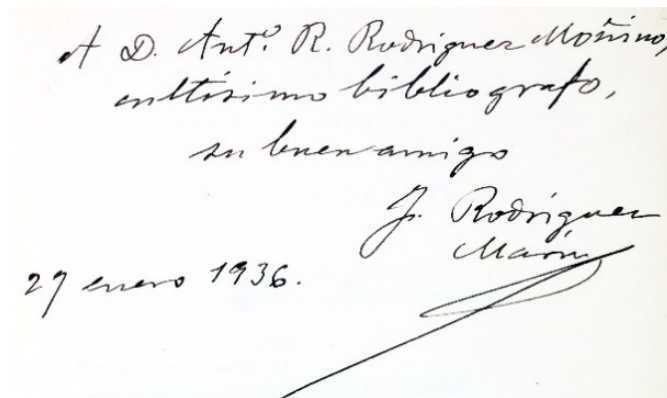 A D. Antº. R. Rodriguez Moñino,
cultísimo bibliografo,
su buen amigo
F. Rodríguez
Marín
27 enero 1936.